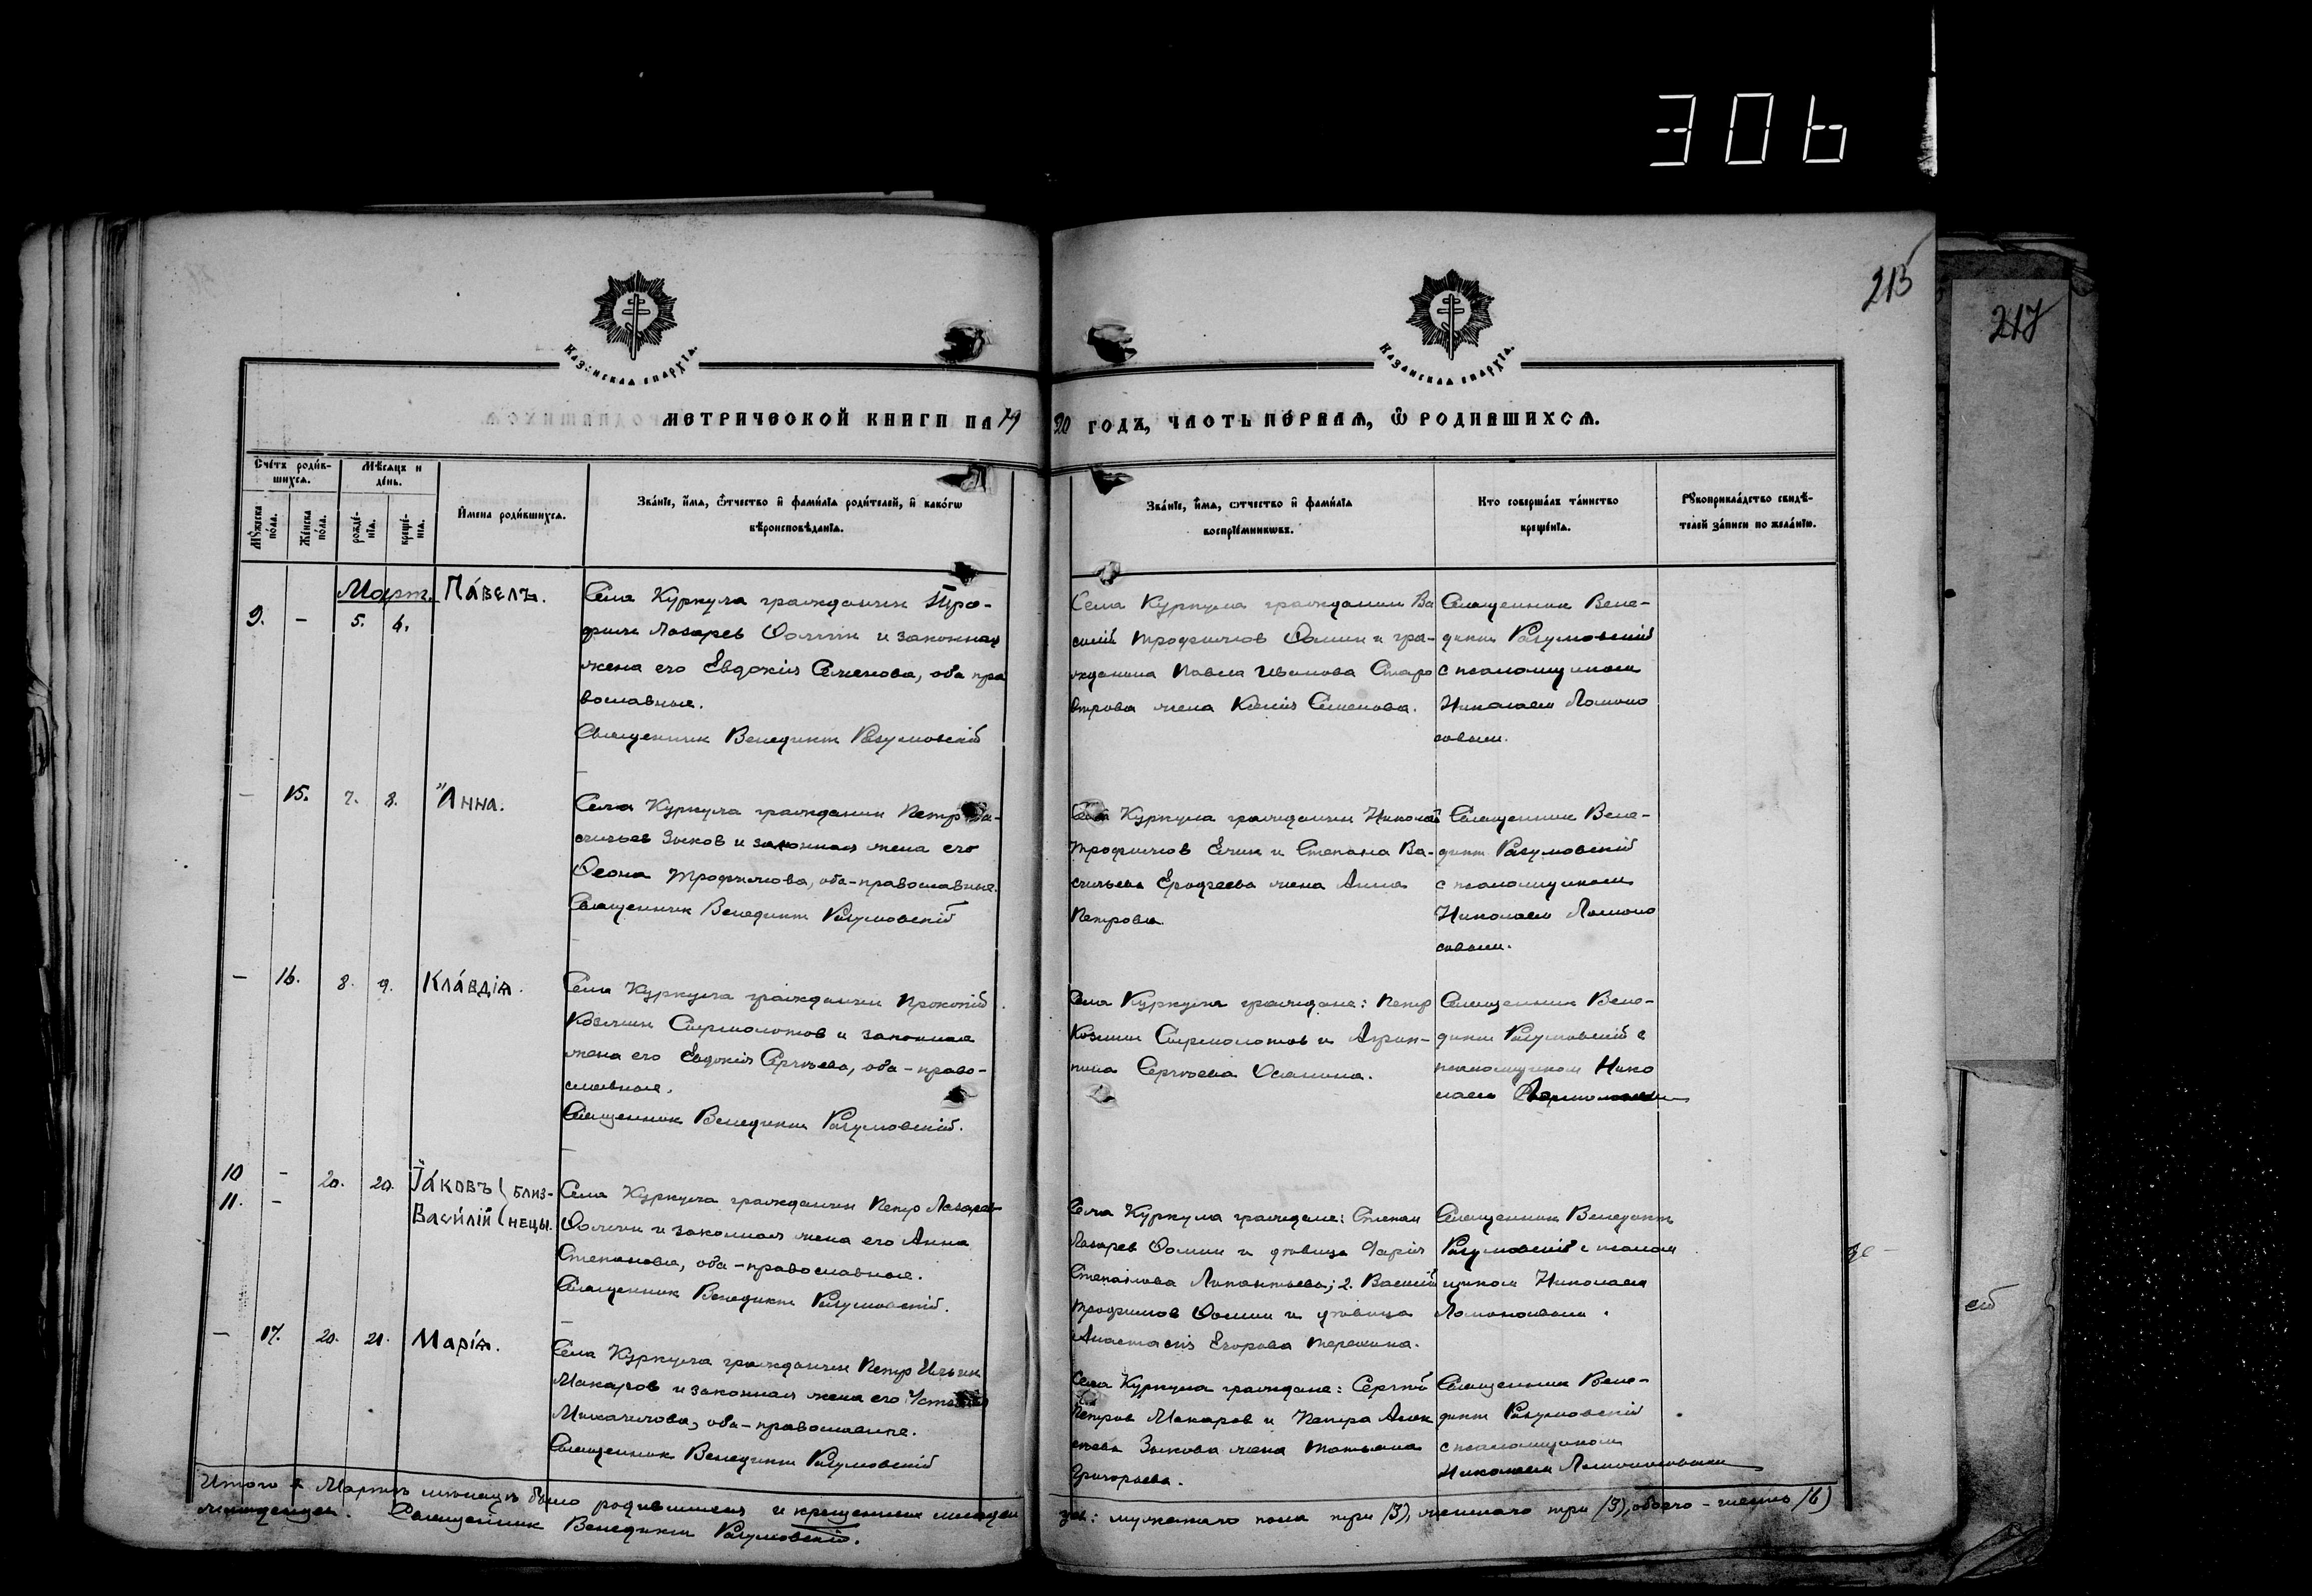 306
213
217
КАЗАНСКАЯ ЕПАРХІЯ.
КАЗАНСКАЯ ЕПАРХІЯ.
МЕТРИЧЕСКОЙ КНИГИ НА 1920 ГОДЪ, ЧАСТЬ ПЕРВАЯ, Ѿ РОДИВШИХСЯ.
Счетъ родившихся.
Мѣсяцъ и день.
Мужеска пола.
Женска пола.
рожденія.
крещенія.
Имена родившихся.
Званіе, имя, отчество и фамилія родителей, и какогѡ вѣроисповѣданія.
Званіе, имя, отчество и фамилія воспріемникѡвъ.
Кто совершалъ таинство крещенія.
Рукоприкладство свидѣтелей записи по желанію.
Март.
9. - 5. 6. Па́велъ.
Села Куркула гражданин Тро-
фим Лазарев Ѳомин и законная
жена его Евдокія Семенова, оба пра
вославные.
Священник Венедикт Разумовскій
Села Куркула гражданин Ва
силій Трофимов Ѳомин и гра-
жданина Павла Иванова Старо
жена Ксенія Семенова.
Священник Вене-
дикт Разумовскій
с псаломщиком
Николаем Ломоно
совым.
- 15. 7. 8. Анна.
Села Куркула гражданин Петр Ва-
сильев Зыков и законная жена его
Ѳеона Трофимова, оба-православные.
Священник Венедикт Разумовскій
Села Куркула гражданин Николай
Трофимов Елин и Степана Ва-
сильева Ерофеева жена Анна
Петрова.
Священник Вене-
дикт Разумовскій
с псаломщиком
Николаем Ломоно
совым.
- 16. 8. 9. Кла́вдія.
Села Куркула гражданин Прокопій
Козьмин Сыромолотов и законная
жена его Евдокія Сергѣева, оба-право-
славные.
Священник Венедикт Разумовскій.
Села Куркула граждане: Петр
Козьмин Сыромолотов и Агрип-
пина Сергѣева Осанина.
Священник Вене-
дикт Разумовскій с
псаломщиком Нико
лаем
10 - 20. 20. Іа́ковъ близ-
11. - Васи́лій нецы.
Села Куркула гражданин Петр Лазарев
Ѳомин и законная жена его Анна
Степанова, оба-православные.
Священник Венедикт Разумовскій.
Села Куркула граждане: Степан
Лазарев Ѳомин и дѣвица Дарія
Степанова; 2. Василій
Трофимов Ѳомин и дѣвица
Анастасія Егорова
Священник Венедикт
Разумовскій с псалом
щиком Николаем
Ломоносовым.
- 17. 20. 21. Марі́я.
Села Куркула гражданин Петр Ильин
Макаров и законная жена его
Михайлова, оба-православные.
Священник Венедикт Разумовскій
Села Куркула граждане: Сергѣй
Петров Макаров и Петра Алек
сѣева Зыкова жена Татьяна
Григорьева.
Священник Вене-
дикт Разумовскій
с псаломщиком
Николаем Ломоносовым
Итого в Мартѣ мѣсяцѣ было родившихся и крещенных младен
цев: мужескаго пола три (3), женскаго три (3), обоего - шесть (6)
младенцев. Священник Венедикт Разумовскій.